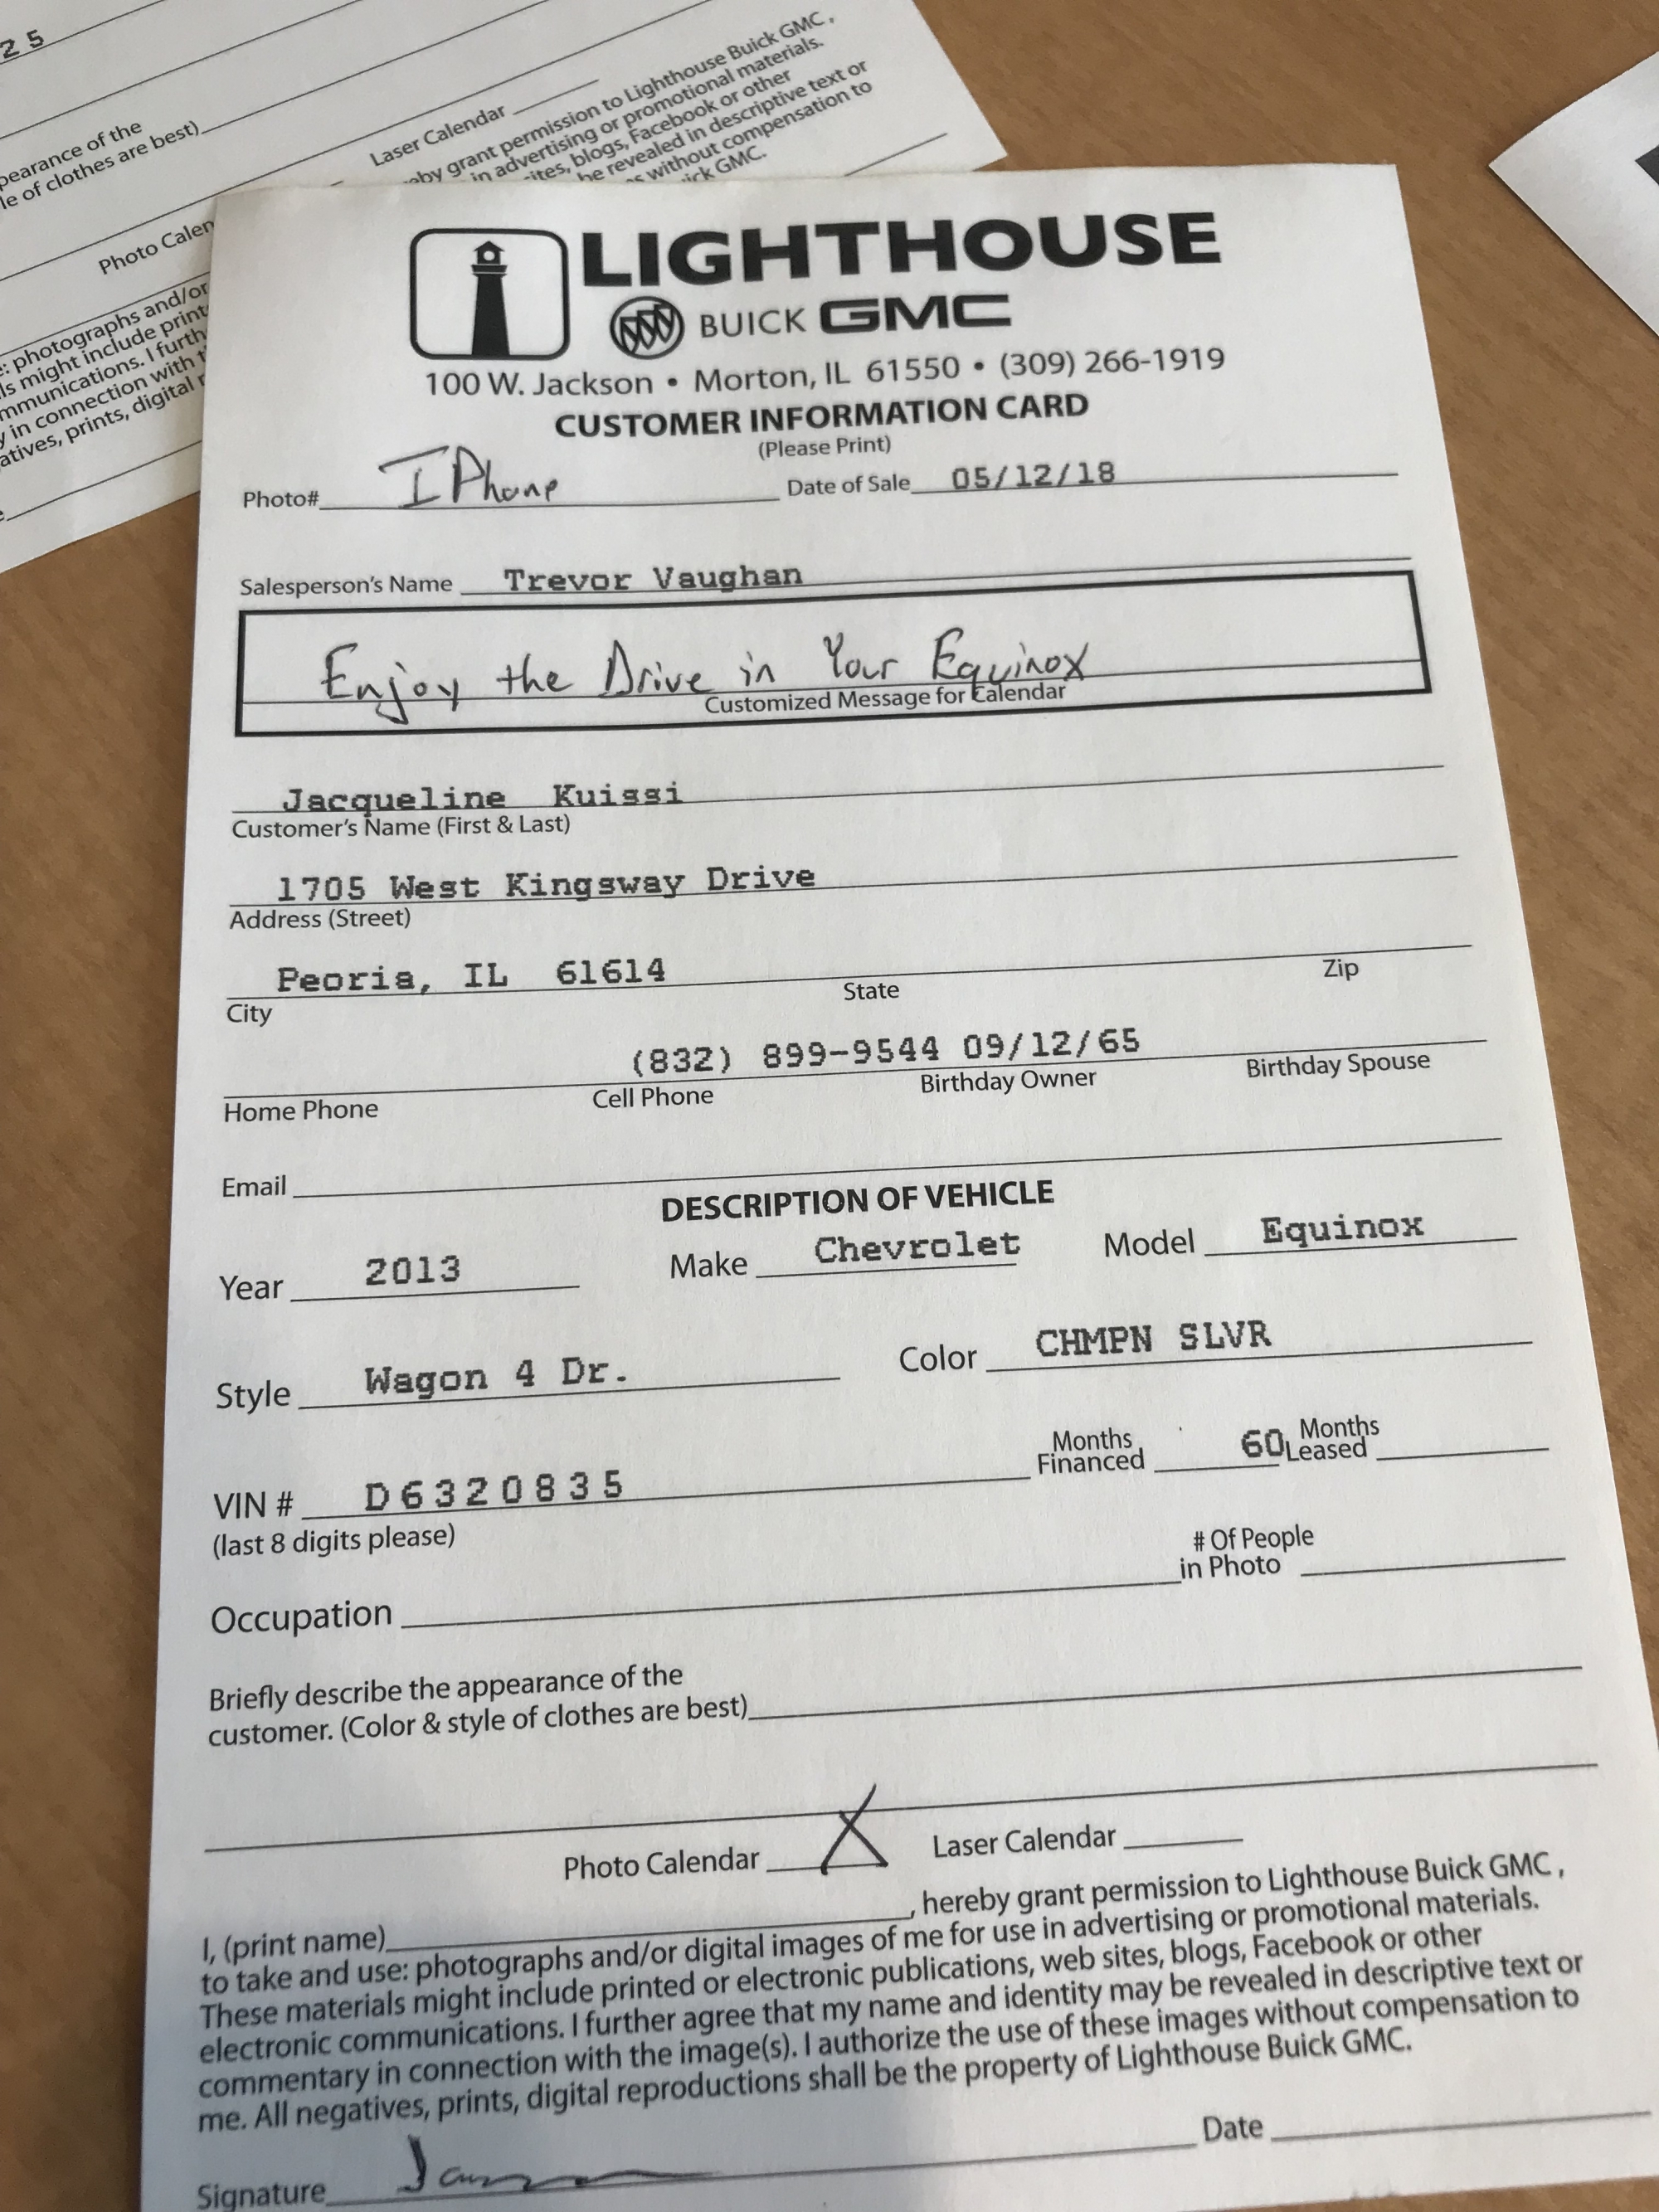 25
pearance of the
le of clothes are best)
Laser Calendar
eby grant permission to Lighthouse Buick GMC,
in advertising or promotional materials.
ites, blogs, Facebook or other
be revealed in descriptive text or
without compensation to
ick GMC.
Photo Calen
: photographs and/or
ls might include print
mmunications. I furth
y in connection with t
atives, prints, digital r
LIGHTHOUSE
BUICK GMC
100 W. Jackson • Morton, IL 61550 • (309) 266-1919
CUSTOMER INFORMATION CARD
(Please Print)
Photo# I Phone Date of Sale 05/12/18
Salesperson's Name Trevor Vaughan
Enjoy the Drive in Your Equinox
Customized Message for Calendar
Jacqueline Kuissi
Customer's Name (First & Last)
1705 West Kingsway Drive
Address (Street)
Peoria, IL 61614
City State Zip
(832) 899-9544 09/12/65
Home Phone Cell Phone Birthday Owner Birthday Spouse
Email
DESCRIPTION OF VEHICLE
Year 2013 Make Chevrolet Model Equinox
Style Wagon 4 Dr. Color CHMPN SLVR
VIN # D6320835 Months Financed 60 Months Leased
(last 8 digits please)
# Of People
Occupation in Photo
Briefly describe the appearance of the
customer. (Color & style of clothes are best)
Photo Calendar X Laser Calendar
I, (print name) , hereby grant permission to Lighthouse Buick GMC ,
to take and use: photographs and/or digital images of me for use in advertising or promotional materials.
These materials might include printed or electronic publications, web sites, blogs, Facebook or other
electronic communications. I further agree that my name and identity may be revealed in descriptive text or
commentary in connection with the image(s). I authorize the use of these images without compensation to
me. All negatives, prints, digital reproductions shall be the property of Lighthouse Buick GMC.
Signature Date